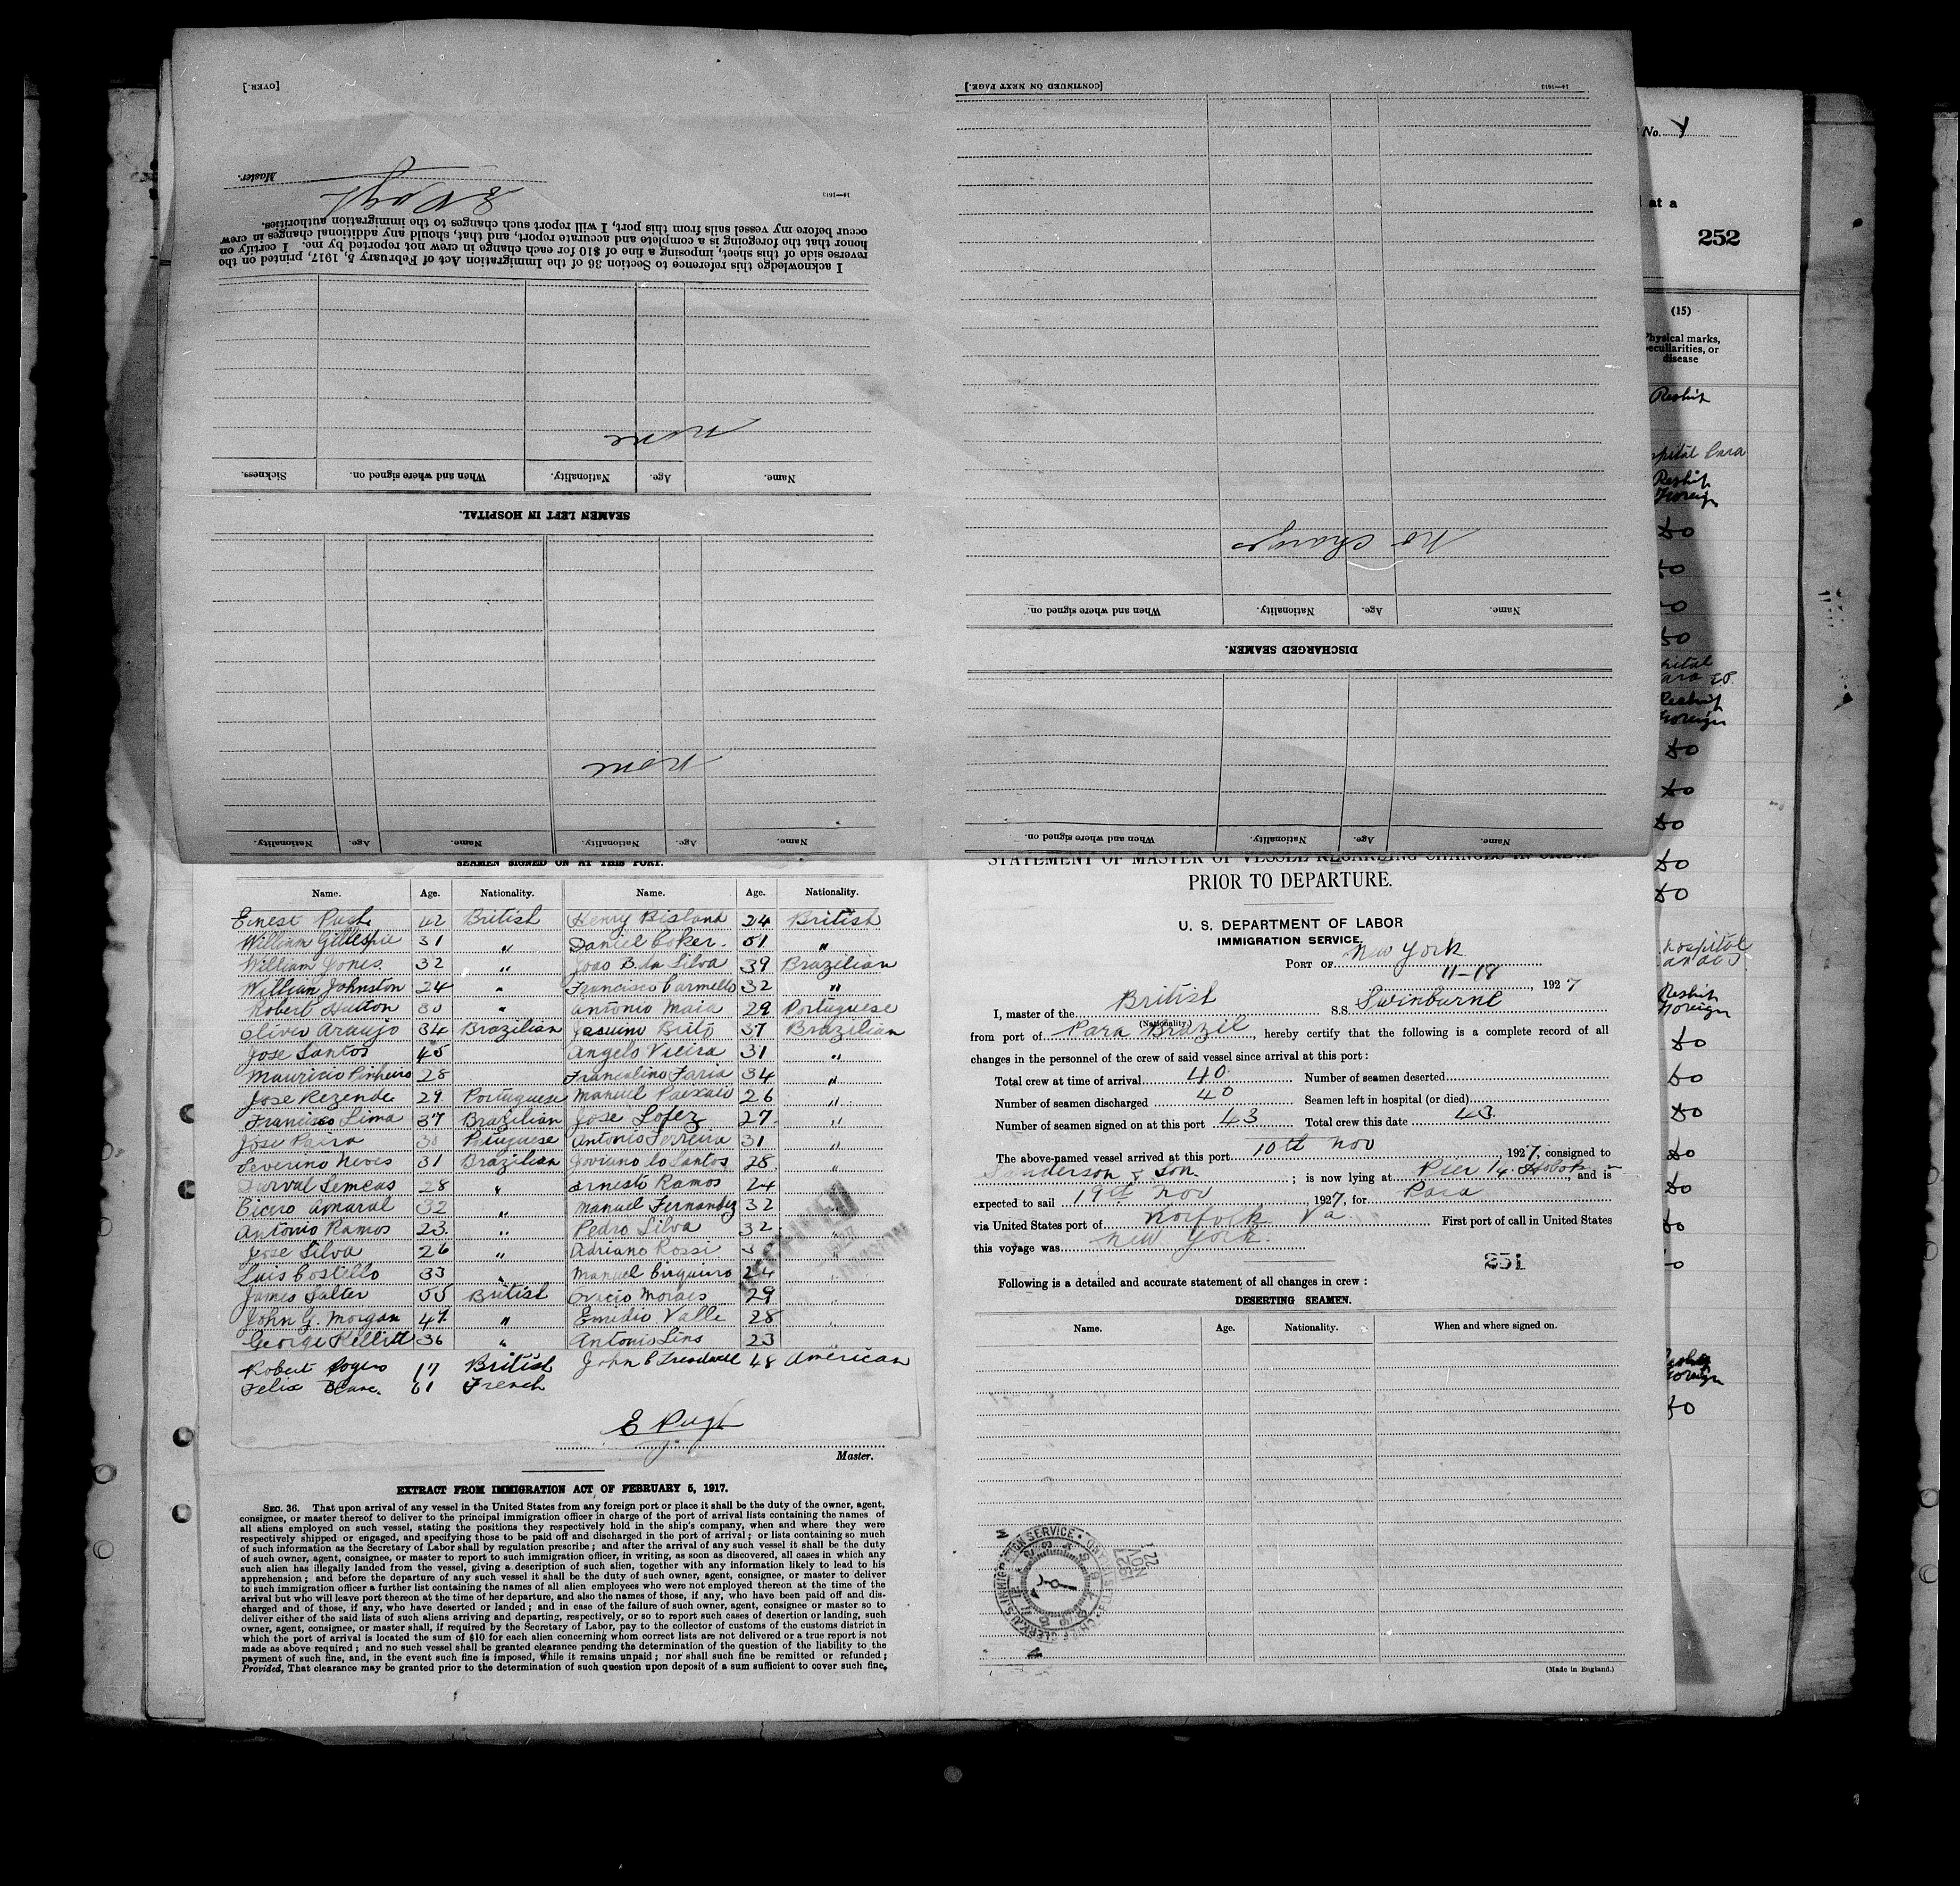 [OVER.]
Master.
E Pugh
14—1613
I acknowledge this reference to Section 36 of the Immigration Act of February 5, 1917, printed on the
reverse side of this sheet, imposing a fine of $10 for each change in crew not reported by me. I certify on
honor that the foregoing is a complete and accurate report, and that, should any additional changes in crew
occur before my vessel sails from this port, I will report such changes to the immigration authorities.
none
Name. Age. Nationality. When and where signed on. Sickness.
SEAMEN LEFT IN HOSPITAL.
None
Name. Age. Nationality. Name. Age. Nationality.
[CONTINUED ON NEXT PAGE.]
14—1613
No Changes
Name. Age. Nationality. When and where signed on.
DISCHARGED SEAMEN.
Name. Age. Nationality. When and where signed on.
No. Y
at a
252
(15)
Physical marks,
peculiarities, or
disease
Reship
Hospital Para
Reship
Foreign
do
do
do
do
Reship
Foreign
do
do
do
do
do
Hospital
Reship
Foreign
do
do
do
do
do
do
Foreign
do
SEAMEN SIGNED ON AT THIS PORT.
Name. Age. Nationality. Name. Age. Nationality.
Ernest Pugh 42 British Henry Bisland 24 British
William Gillespie 31 " Daniel Coker. 51 "
William Jones. 32 " Joao B. da Silva 39 Brazilian
William Johnston 24 " Francisco Carmello 32 "
Robert Hutton 30 " Antonio Maia 29 Portuguese
Olivio Araujo 34 Brazilian Joauim Brito 37 Brazilian
Jose Santos 45 Angelo Vieira 31 "
Mauricio Pinheiro 28 Francolino Faria 34 "
Jose Rezende 29 Portuguese Manuel Paixaio 26 "
Francisco Lima 37 Brazilian Jose Lofez 27 "
Jose Paira 30 Portuguese Antonio Ferreira 31 "
Severino Neves 31 Brazilian Joviano lo Santos 28 "
Durval Lemeas 28 " Ernesto Ramos 24
Cicero Amaral 32 " Manuel Fernandez 32 "
Antonio Ramos 23. " Pedro Silva 32 "
Jose Silva 26 " Adriano Rossi 3
Luis Costello 33 " Manuel Cirqueiro 24 "
James Salter 55 British Oracio Moraes 29 "
John G. Morgan 47 " Emidio Valle 28 "
George Kellitt 36 " Antonio Lins 23
Robert Rogers 17 British John C Treadwell 48 American
Felix Blanc. 61 French
E Pugh
Master.
EXTRACT FROM IMMIGRATION ACT OF FEBRUARY 5, 1917.
SEC. 36. That upon arrival of any vessel in the United States from any foreign port or place it shall be the duty of the owner, agent,
consignee, or master thereof to deliver to the principal immigration officer in charge of the port of arrival lists containing the names of
all aliens employed on such vessel, stating the positions they respectively hold in the ship's company, when and where they were
respectively shipped or engaged, and specifying those to be paid off and discharged in the port of arrival; or lists containing so much
of such information as the Secretary of Labor shall by regulation prescribe; and after the arrival of any such vessel it shall be the duty
of such owner, agent, consignee, or master to report to such immigration officer, in writing, as soon as discovered, all cases in which any
such alien has illegally landed from the vessel, giving a description of such alien, together with any information likely to lead to his
apprehension; and before the departure of any such vessel it shall be the duty of such owner, agent, consignee, or master to deliver
to such immigration officer a further list containing the names of all alien employees who were not employed thereon at the time of the
arrival but who will leave port thereon at the time of her departure, and also the names of those, if any, who have been paid off and dis-
charged and of those, if any, who have deserted or landed; and in case of the failure of such owner, agent, consignee or master so to
deliver either of the said lists of such aliens arriving and departing, respectively, or so to report such cases of desertion or landing, such
owner, agent, consignee, or master shall, if required by the Secretary of Labor, pay to the collector of customs of the customs district in
which the port of arrival is located the sum of $10 for each alien concerning whom correct lists are not delivered or a true report is not
made as above required; and no such vessel shall be granted clearance pending the determination of the question of the liability to the
payment of such fine, and, in the event such fine is imposed, while it remains unpaid; nor shall such fine be remitted or refunded;
Provided, That clearance may be granted prior to the determination of such question upon deposit of a sum sufficient to cover such fine,
STATEMENT OF MASTER OF VESSEL REGARDING CHANGES IN CREW
PRIOR TO DEPARTURE.
U. S. DEPARTMENT OF LABOR
IMMIGRATION SERVICE
PORT OF New York
11-18, 1927
I, master of the British S.S. Swinburne
(Nationality.)
from port of Para Brazil, hereby certify that the following is a complete record of all
changes in the personnel of the crew of said vessel since arrival at this port:
Total crew at time of arrival 40 Number of seamen deserted
Number of seamen discharged 40 Seamen left in hospital (or died)
Number of seamen signed on at this port 43 Total crew this date 43
The above-named vessel arrived at this port 10th Nov, 1927, consigned to
Sanderson & Son; is now lying at Pier 14 Hoboken, and is
expected to sail 19th Nov 1927, for Para
via United States port of Norfolk Va First port of call in United States
this voyage was New York.
251
Following is a detailed and accurate statement of all changes in crew:
DESERTING SEAMEN.
Name. Age. Nationality. When and where signed on.
U.S. IMMIGRATION SERVICE
22 NOV 1927
(Made in England.)